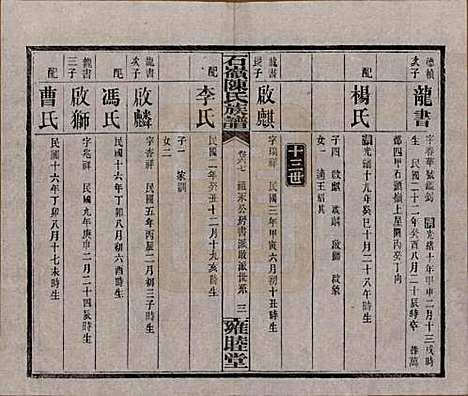 德楨
次子
龍書
字春華號藍錦 清光緒十年甲申二月十三戌時生
民國二十二年癸酉八月二十辰時卒 葬萬
都四甲石頭嶺上星圍內癸丁向
配
楊氏
清光緒十九年癸巳十月二十八午時生
子四 啟麒 啟麟 啟獅 啟
女一 適王紹其
十三世
龍書
長子
啟麒
字瑞祥 民國三年甲寅六月初十丑時生
石嶺陳氏族譜
卷六七
三
雍睦堂
配
李氏
民國二年癸丑十二月十九亥時生
子一 家訓
女二
龍書
次子
啟麟
字香祥 民國五年丙辰二月初三子時生
配
馮氏
民國十六年丁卯八月初六酉時生
龍書
三子
啟獅
字兆祥 民國九年庚申二月二十四辰時生
配
曹氏
民國十六年丁卯八月十七未時生